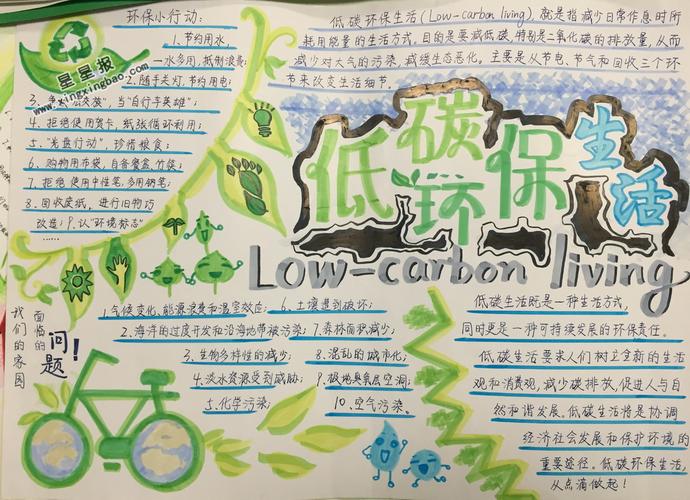 环保小行动：
1.节约用水，
一水多用，抵制浪费；
2.随手关灯，节约用电；
星星报
www.xingxingbao.com
当“自行手英雄”；
4.拒绝使用贺卡，纸张循环利用；
5.“光盘行动”，珍惜粮食；
6.购物用布袋，自备餐盒、竹筷；
7.拒绝使用中性笔，多用钢笔；
8.回收废纸，进行旧物巧
改造；9.认“环境标志”
……
低碳环保生活(Low-carbon living)，就是指减少日常作息时所
耗用能量的生活方式，目的是要减低碳，特别是二氧化碳的排放量，从而
减少对大气的污染，减缓生态恶化。主要是从节电、节气和回收三个环
节来改变生活细节。
低碳环保生活
Low-carbon living
我们的家园
面临的
问题！
1.气候变化、能源浪费和温室效应；
2.海洋的过度开发和沿海地带被污染；
3.生物多样性的减少；
4.淡水资源受到威胁；
5.化学污染；
6.土壤遭到破坏；
7.森林面积减少；
8.混乱的城市化；
9.极地臭氧层空洞；
10.空气污染。
低碳生活既是一种生活方式，
同时更是一种可持续发展的环保责任。
低碳生活要求人们树立全新的生活
观和消费观，减少碳排放，促进人与自
然和谐发展。低碳生活将是协调
经济社会发展和保护环境的
重要途径。低碳环保生活，
从点滴做起！